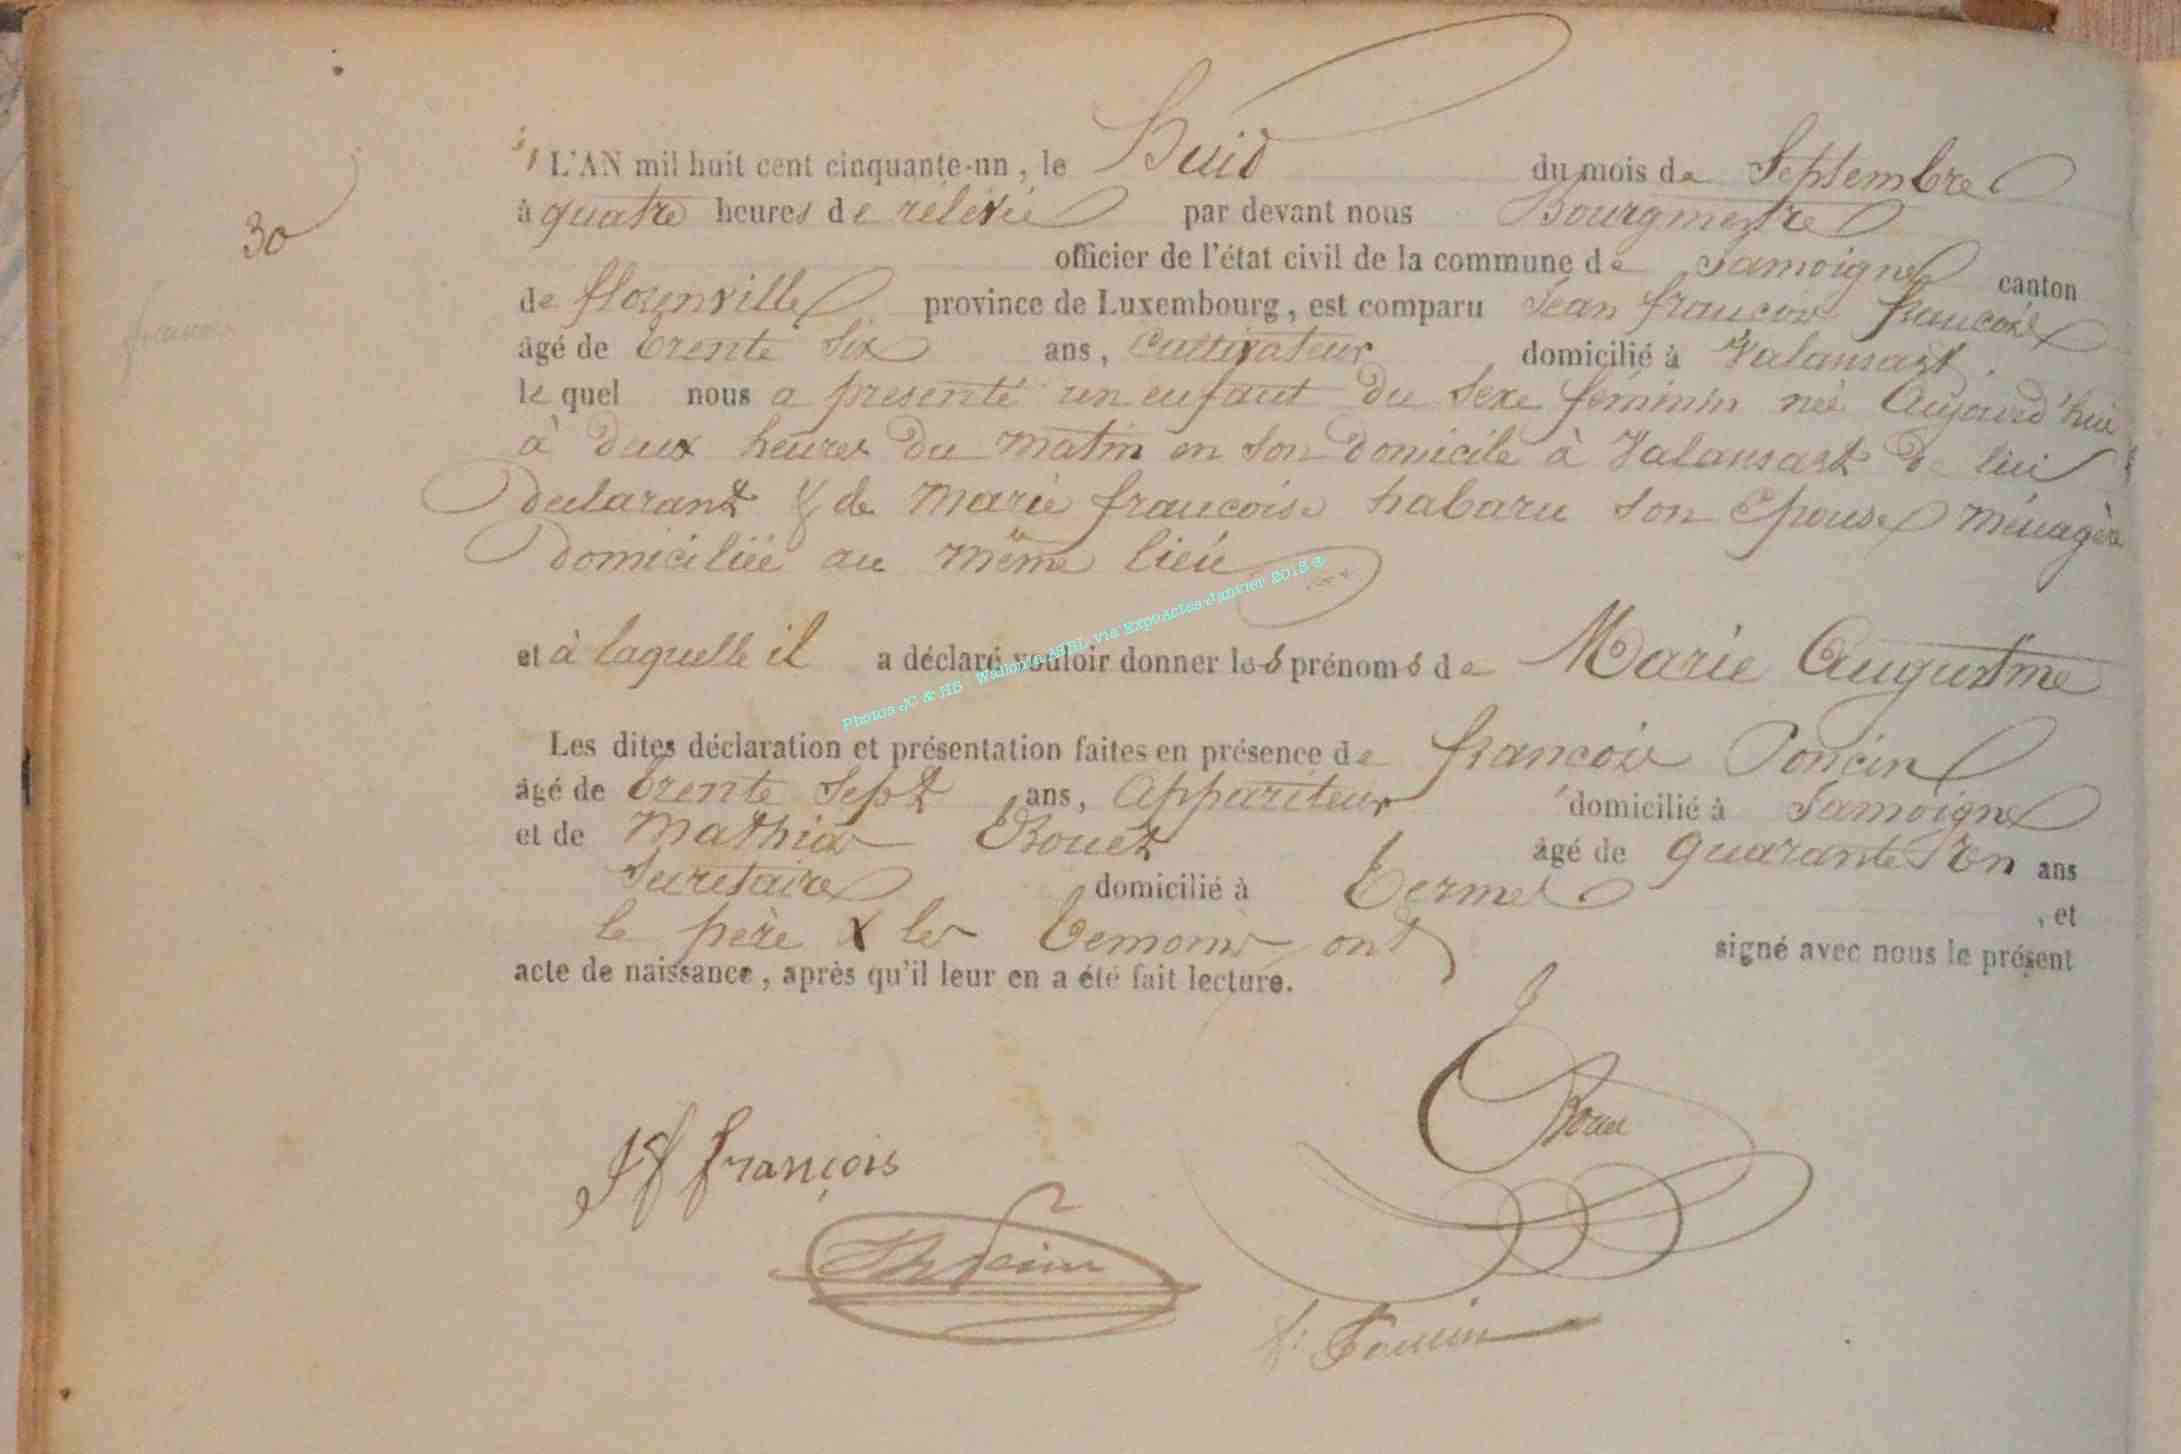 L'AN mil huit cent cinquante-un, le huid du mois de Septembre
à quatre heures de rélévée par devant nous Bourgmestre
officier de l'état civil de la commune de Jamoigne canton
30
de florenville province de Luxembourg, est comparu Jean françois françois
françois
âgé de trente six ans, Cultivateur domicilié à Valansart
le quel nous a présenté un enfant du sexe féminin née Aujourd'hui
à deux heures du matin en son domicile à Valansart de lui
declarant & de Marie francoise habaru son épouse ménagère
domiciliée au même lieu
et à laquelle il a déclaré vouloir donner les prénoms de Marie Augustine
Photos JC & HB Wallonia ASBL via ExpoActes-Janvier 2015 ©
Les dites déclaration et présentation faites en présence de françois Poncin
âgé de trente sept ans, Appariteur domicilié à Jamoigne
et de Mathias Bouet âgé de quarante un ans
Secrétaire domicilié à termes
, et
le père & les témoins ont signé avec nous le présent
acte de naissance, après qu'il leur en a été fait lecture.
Jf françois
fs Poncin